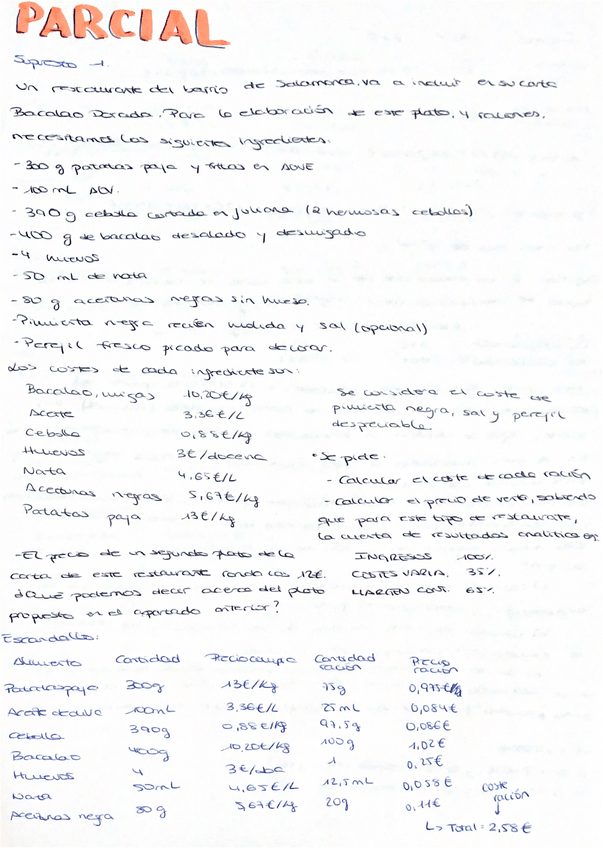 PARCIAL
Supuesto 1.
Un restaurante del barrio de Salamanca, va a incluir en su carta
Bacalao Dorado. Para la elaboración de este plato, 4 raciones,
necesitamos los siguientes ingredientes:
- 300 g patatas paja y fritas en AOVE
- 100 mL AOV.
- 390 g cebolla cortada en juliana (2 hermosas cebollas)
- 400 g de bacalao desalado y desmigado
- 4 huevos
- 50 mL de nata
- 80 g aceitunas negras sin hueso.
- Pimienta negra recién molida y sal (opcional)
- Perejil fresco picado para decorar.
Los costes de cada ingrediente son:
Bacalao, migas 10,20€/kg
Aceite 3,36€/L
Cebolla 0,88€/kg
Huevos 3€/docena
Nata 4,65€/L
Aceitunas negras 5,67€/kg
Patatas paja 13€/kg
Se considera el coste de
pimienta negra, sal y perejil
despreciable
• Se pide:
- Calcular el coste de cada ración
- Calcular el precio de venta, sabiendo
que para este tipo de restaurante,
la cuenta de resultados analítica es:
INGRESOS 100%
COSTES VARIA. 35%
MARGEN CONT. 65%
- El precio de un segundo plato de la
carta de este restaurante ronda los 12€.
¿Qué podemos decir acerca del plato
propuesto en el apartado anterior?
Escandallo:
Alimento Cantidad Precio compra Cantidad ración Precio ración
Patatas paja 300g 13€/kg 75g 0,975€/kg
Aceite de oliva 100mL 3,36€/L 25 mL 0,084€
Cebolla 390g 0,88€/kg 97,5g 0,086€
Bacalao 400g 10,20€/kg 100g 1,02€
Huevos 4 3€/ 1 0,25€
Nata 50mL 4,65€/L 12,5mL 0,058€
Aceitunas negra 80g 5,67€/kg 20g 0,11€
coste
ración
↳ Total = 2,58€